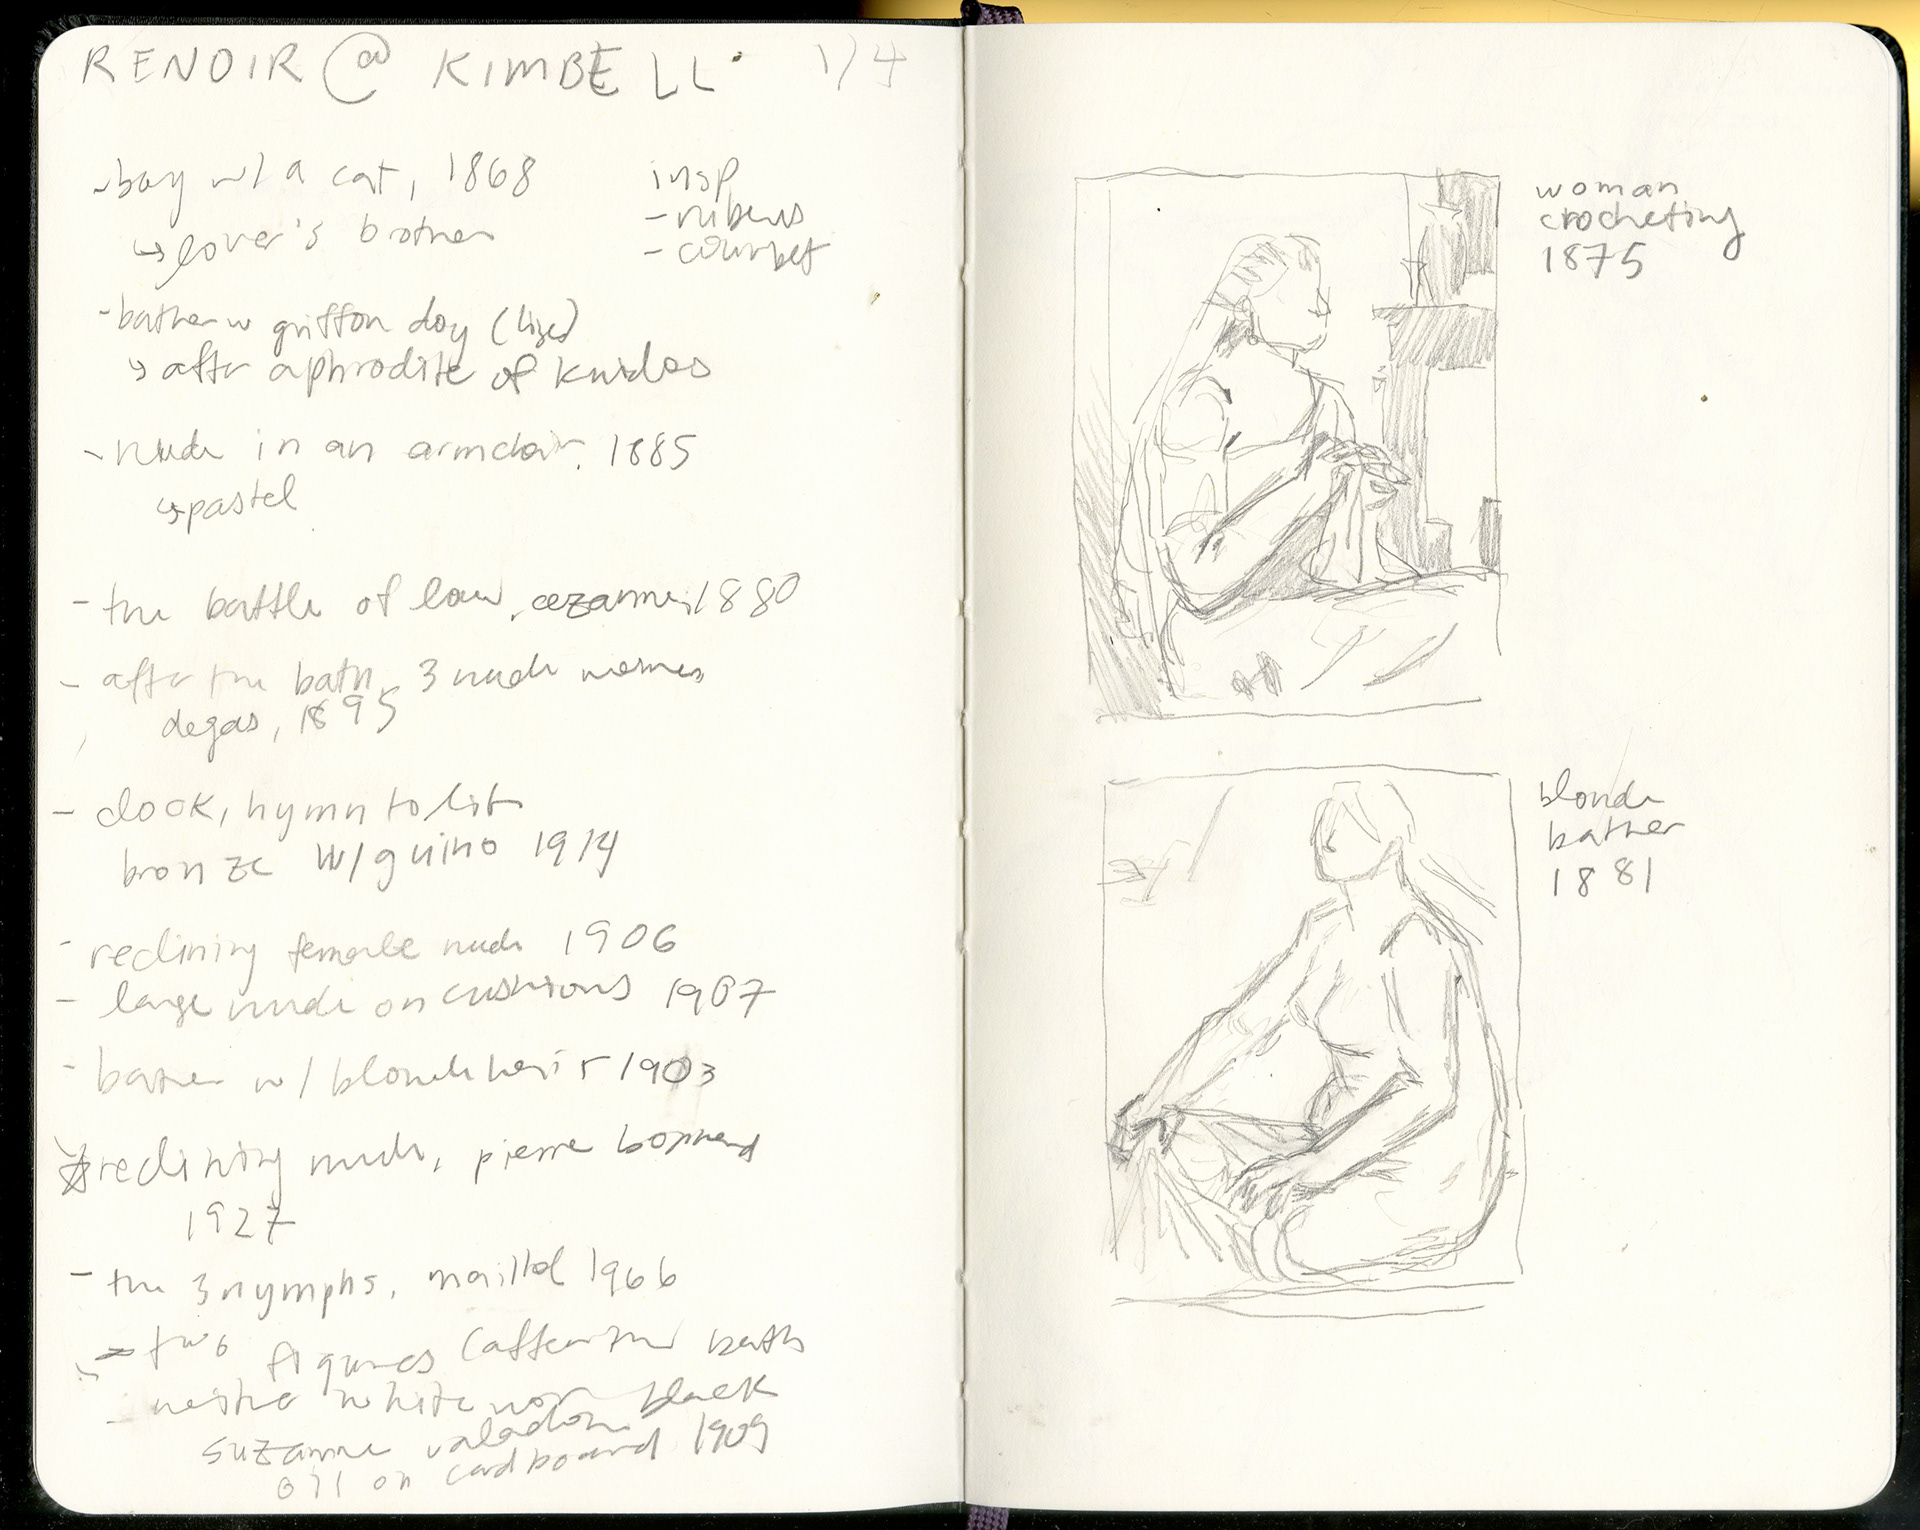 RENOIR @ KIMBELL 1/4
- boy w/ a cat, 1868
↳ lover's brother
insp
- rubens
- courbet
- bather w griffon dog (lise)
↳ after aphrodite of knidos
- nude in an armchair, 1885
↳ pastel
- the battle of love, cezanne, 1880
- after the bath, 3 nude women
degas, 1895
- clock, hymn to life
bronze w/ guino 1914
- reclining female nude 1906
- large nude on cushions 1907
- bather w/ blonde hair 1903
☆ reclining nude, pierre bonnard
1927
- the 3 nymphs, maillol 1966
- two figures (after the bath
neither white nor black
suzanne valadon
oil on cardboard 1909
woman
crocheting
1875
blonde
bather
1881